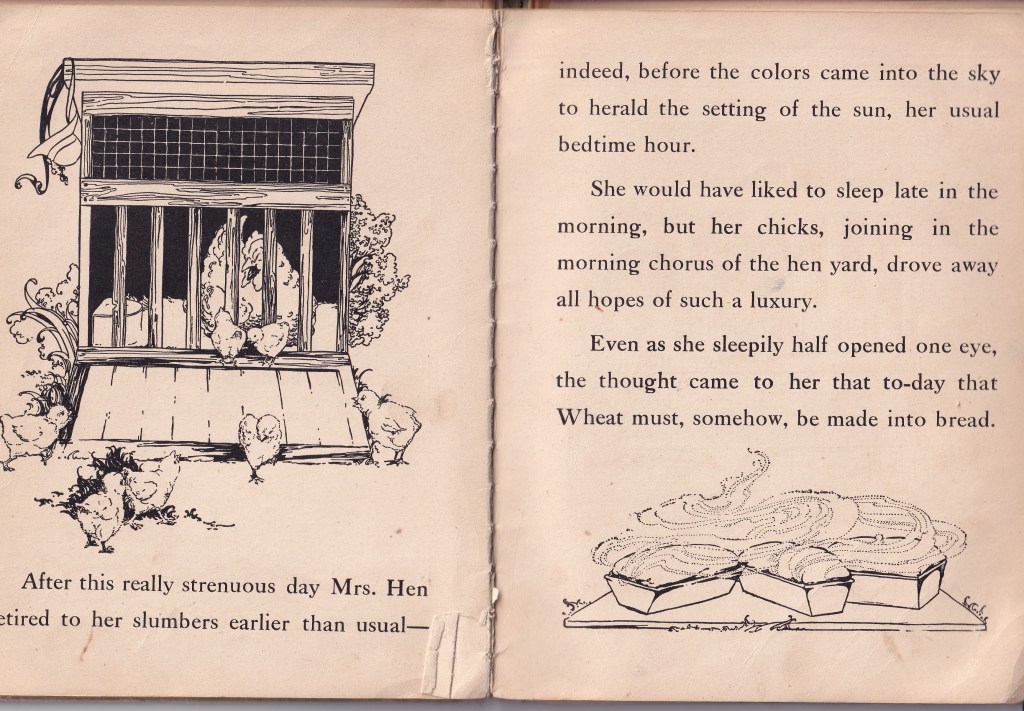 After this really strenuous day Mrs. Hen
etired to her slumbers earlier than usual—
indeed, before the colors came into the sky
to herald the setting of the sun, her usual
bedtime hour.
She would have liked to sleep late in the
morning, but her chicks, joining in the
morning chorus of the hen yard, drove away
all hopes of such a luxury.
Even as she sleepily half opened one eye,
the thought came to her that to-day that
Wheat must, somehow, be made into bread.